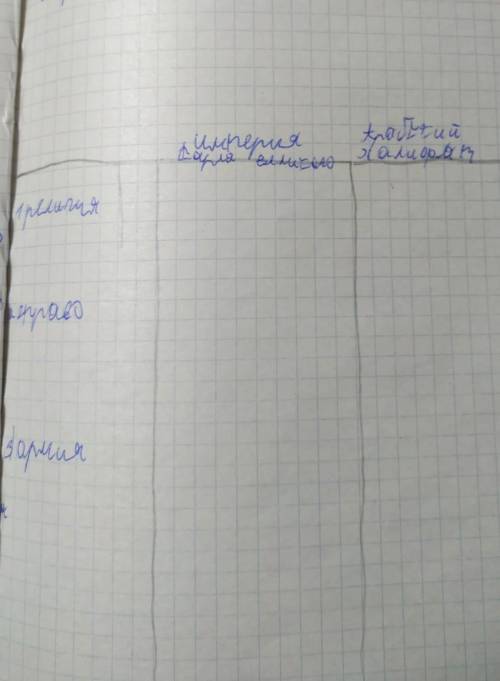 империя
Карла великого
Арабский
халифат
1 религия
2 право
3 армия